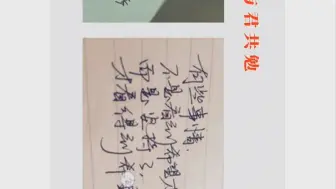 与君共勉
有些事情,
不是看到希望
而是坚持了,
才看得到希